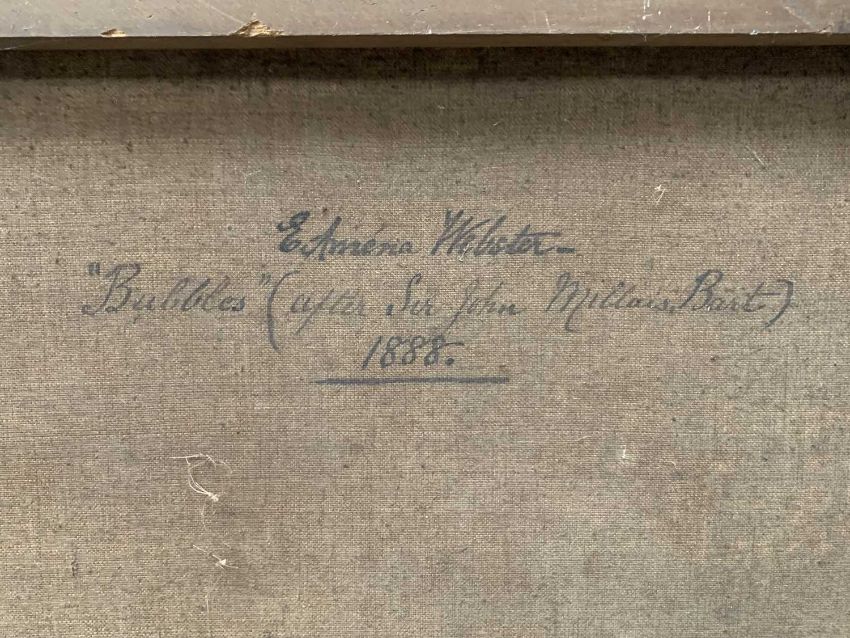 E. Amena Webster -
"Bubbles" (after Sir John Millais. Bart.)
1888.